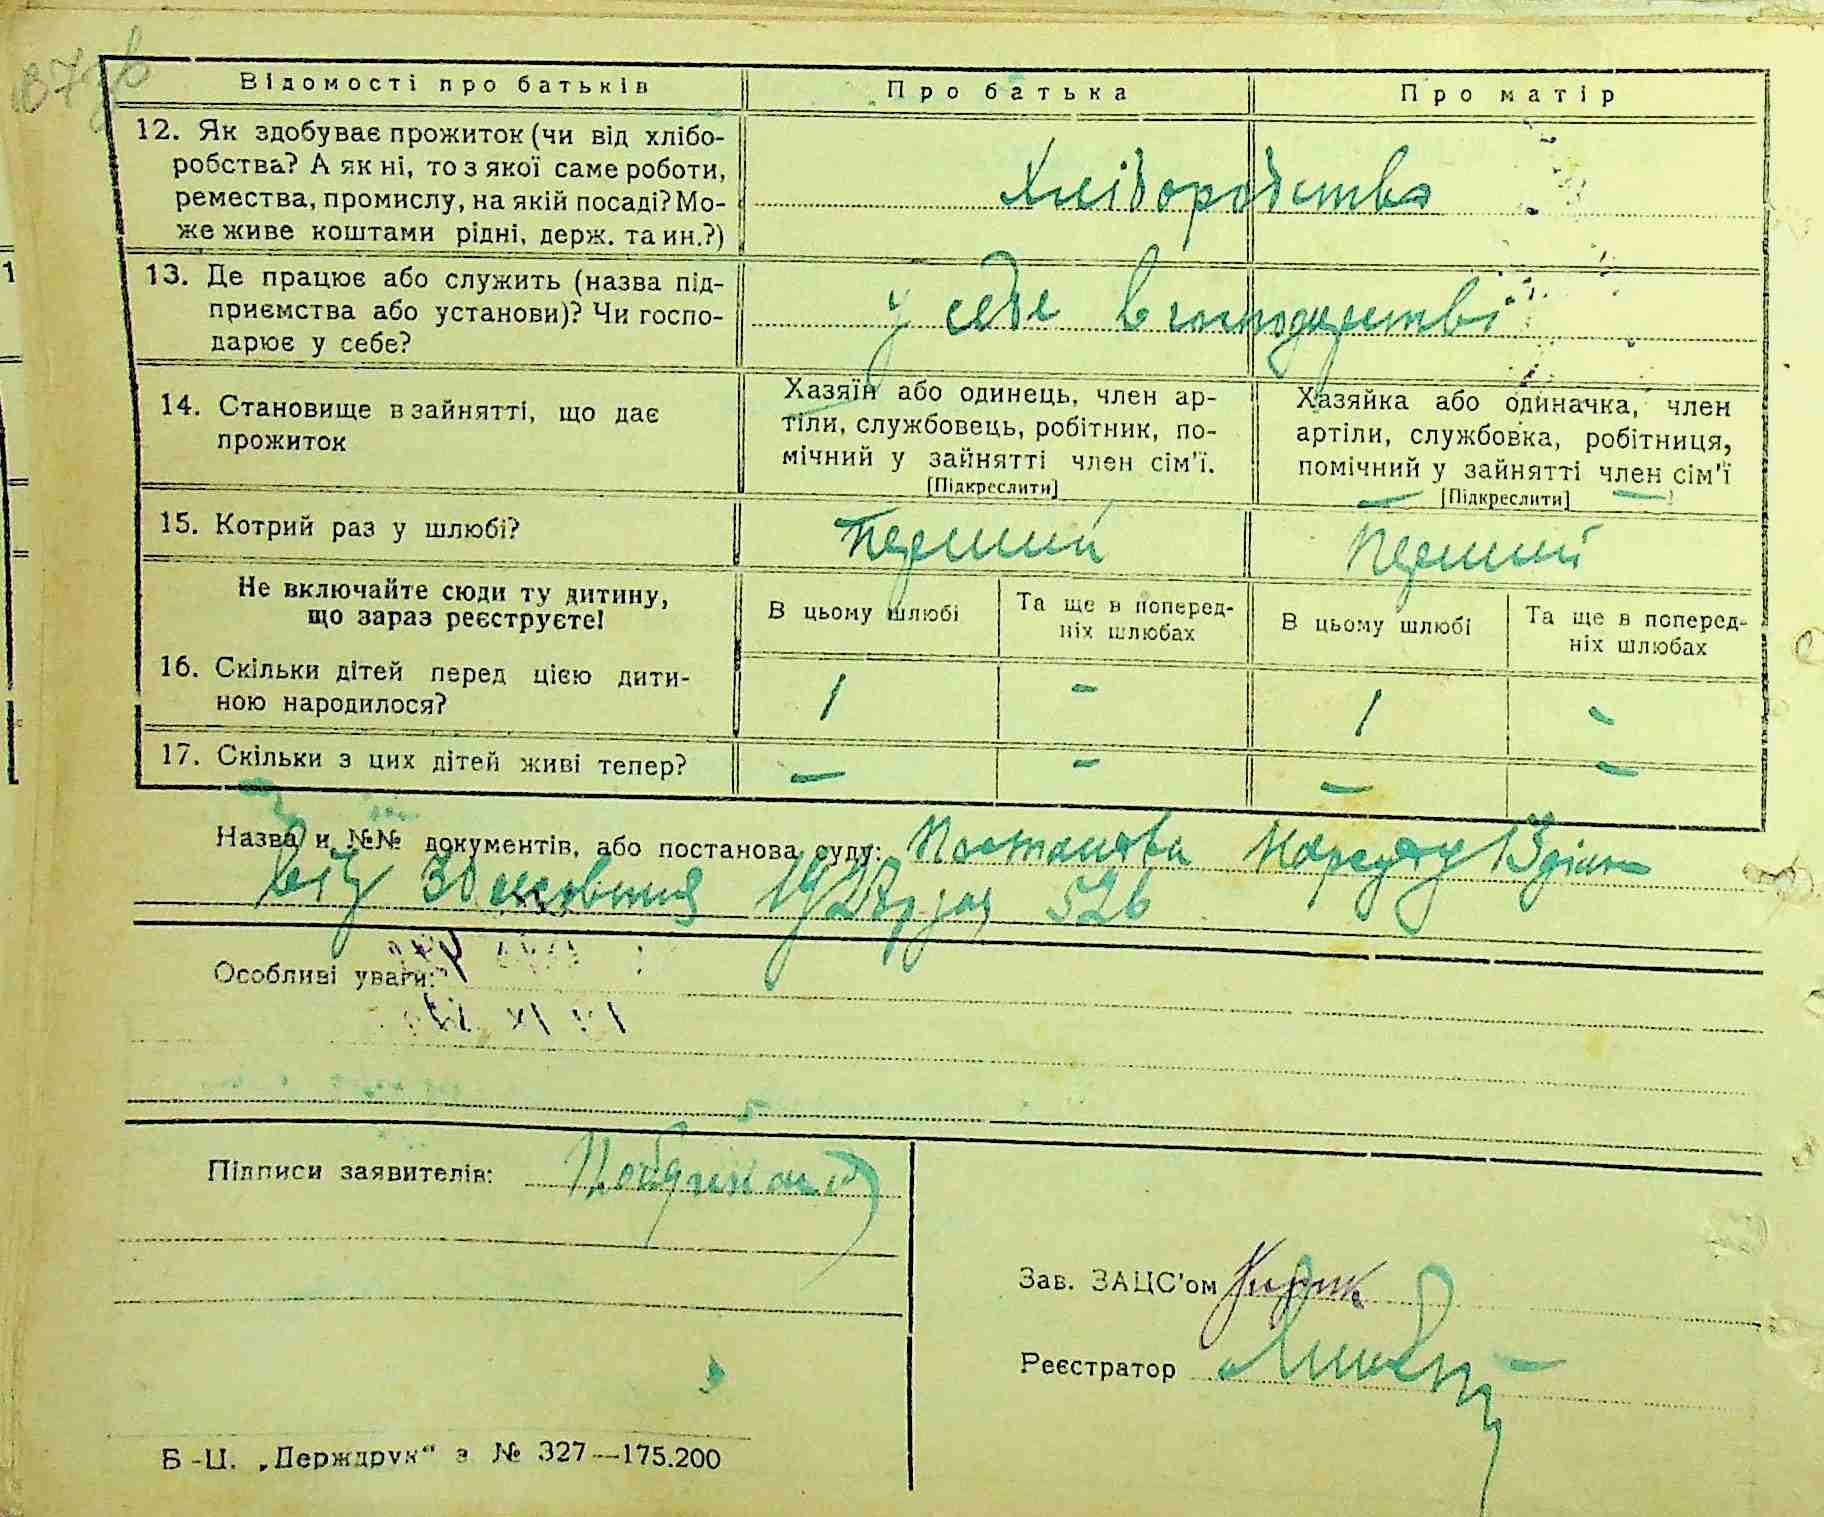 Відомості про батьків Про батька Про матір
12. Як здобуває прожиток (чи від хлібо-
робства? А як ні, то з якої саме роботи,
ремества, промислу, на якій посаді? Мо-
же живе коштами рідні, держ. та ин.?)
Хліборобство
13. Де працює або служить (назва під-
приємства або установи)? Чи госпо-
дарює у себе?
у себе в господарстві
14. Становище в зайнятті, що дає
прожиток
Хазяїн або одинець, член ар-
тіли, службовець, робітник, по-
мічний у зайнятті член сім'ї.
[Підкреслити]
Хазяйка або одиначка, член
артіли, службовка, робітниця,
помічний у зайнятті член сім'ї
[Підкреслити]
15. Котрий раз у шлюбі? Перший Перший
Не включайте сюди ту дитину,
що зараз реєструєте!
В цьому шлюбі
Та ще в поперед-
ніх шлюбах
В цьому шлюбі
Та ще в поперед-
ніх шлюбах
16. Скільки дітей перед цією дити-
ною народилося?
1 - 1 -
17. Скільки з цих дітей живі тепер? — - — -
Назва и №№ документів, або постанова суду: Постанова Нарсуду
від 30 жовтня 1927р за 526
Особливі уваги:
Підписи заявителів:
Зав. ЗАЦС'ом
Реєстратор
Б-Ц. „Держдрук" з № 327—175.200
1